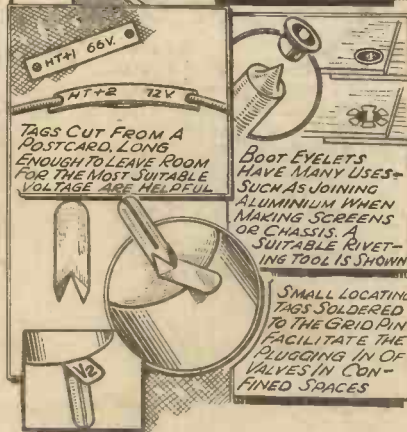 HT+1 66V.
HT+2 72V
TAGS CUT FROM A
POSTCARD, LONG
ENOUGH TO LEAVE ROOM
FOR THE MOST SUITABLE
VOLTAGE ARE HELPFUL
BOOT EYELETS
HAVE MANY USES-
SUCH AS JOINING
ALUMINIUM WHEN
MAKING SCREENS
OR CHASSIS. A
SUITABLE RIVET-
ING TOOL IS SHOWN
SMALL LOCATING
TAGS SOLDERED
TO THE GRID PIN
FACILITATE THE
PLUGGING IN OF
VALVES IN CON-
FINED SPACES
V2